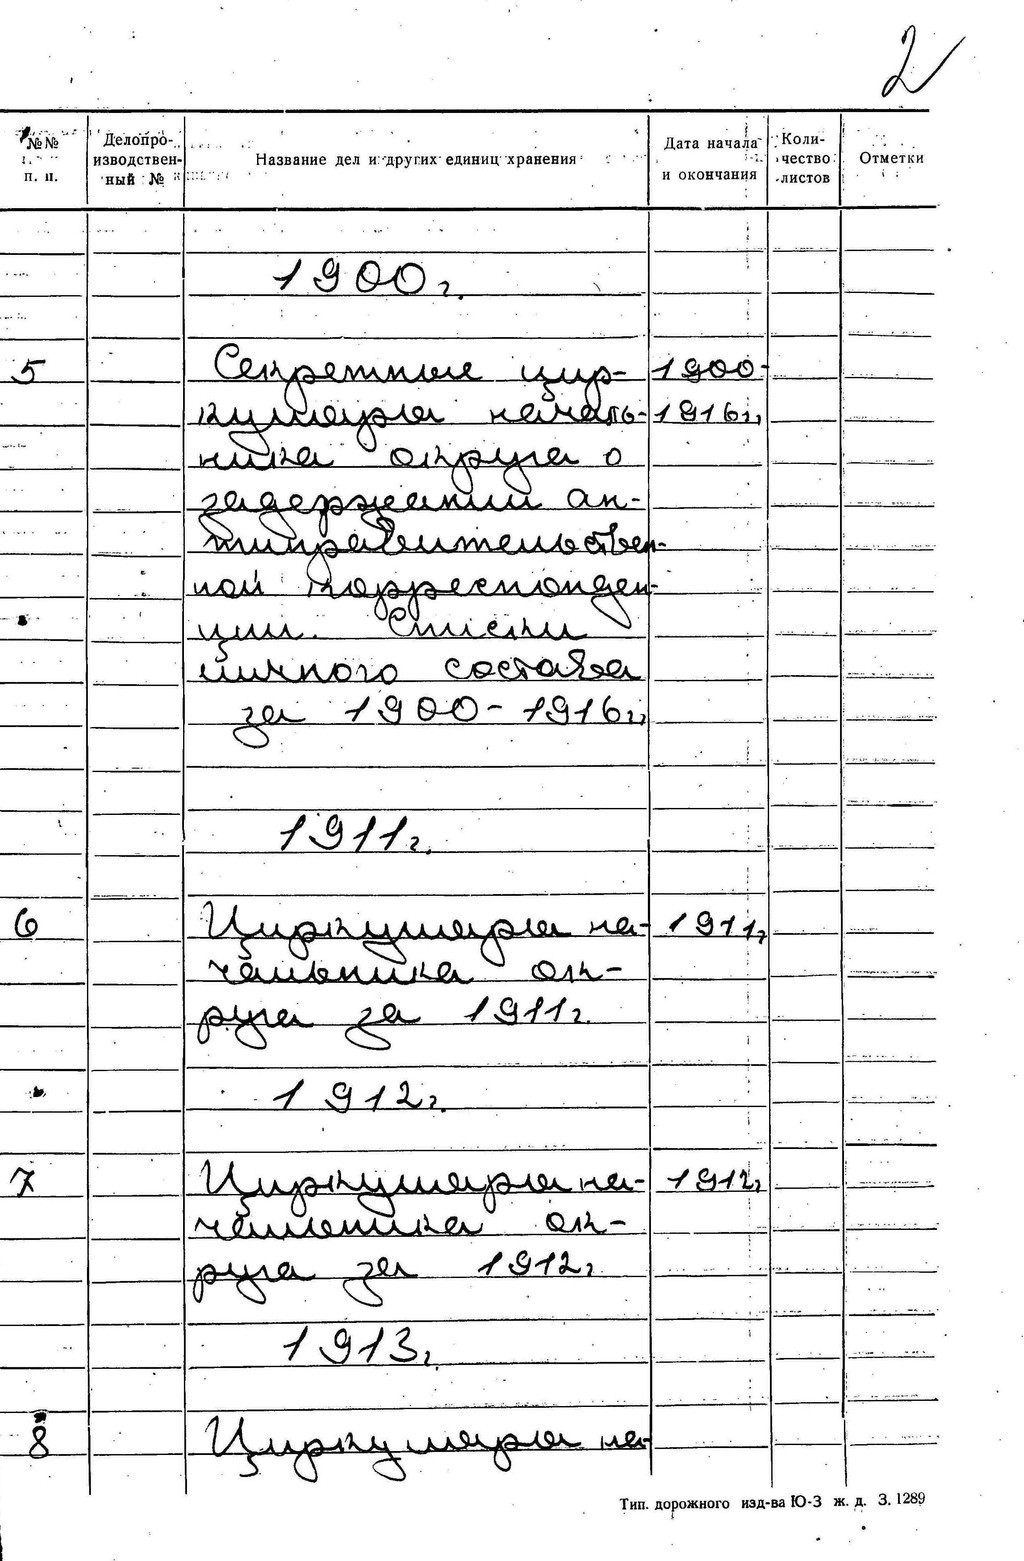 2
№№ п. п.
Делопро-
изводствен-
ный №
Название дел и других единиц хранения
Дата начала
и окончания
Коли-
чество
листов
Отметки
1900г.
5 Секретные цир- 1900-
куляры началь- 1916гг,
ника округа о
задержании ан-
типравительствен-
ной корреспонден-
ции. Списки
личного состава
за 1900-1916гг,
1911г.
6 Циркуляры на- 1911г
чальника ок-
руга за 1911г.
1912г.
7 Циркуляры на- 1912г
чальника ок-
руга за 1912г.
1913г.
8 Циркуляры на-
Тип. дорожного изд-ва Ю-З ж. д. З. 1289